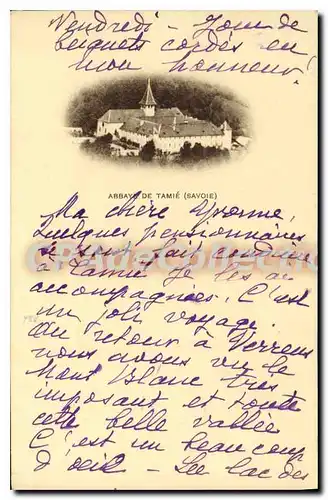 Vendredi - Jour de
beignets cordés en
mon honneur!
ABBAYE DE TAMIÉ (SAVOIE)
Ma chère Yvonne,
Quelques pensionnaires
se sont fait conduire
à Tamié je les ai
accompagnées. C'est
un joli voyage.
Au retour à Verrens
nous avons vu le
Mont Blanc très
imposant et toute
cette belle vallée
C'est un beau coup
d'œil - Le lac des